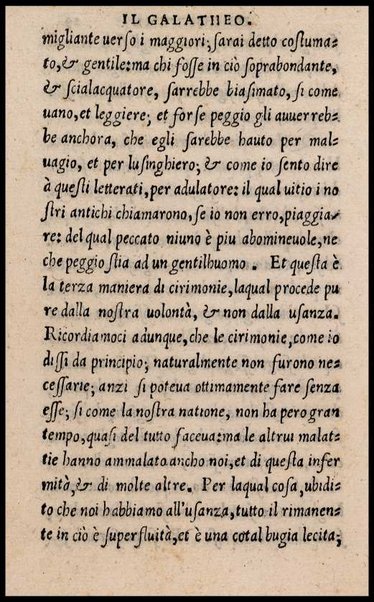 IL GALATHEO.
migliante uerso i maggiori; sarai detto costuma⸗
to, & gentile: ma chi fosse in ciò soprabondante,
& scialacquatore, sarrebbe biasimato, si come
uano, et leggiere; et forse peggio gli auuerreb⸗
be anchora, che egli sarebbe hauto per mal⸗
uagio, et per lusinghiero; & come io sento dire
à questi letterati, per adulatore: il qual uitio i no
stri antichi chiamarono, se io non erro, piaggia⸗
re: del qual peccato niuno è piu abomineuole, ne
che peggio stia ad un gentilhuomo. Et questa è
la terza maniera di cirimonie, laqual procede pu
re dalla nostra uolontà, & non dalla usanza.
Ricordiamoci adunque, che le cirimonie, come io
dissi da principio; naturalmente non furono ne⸗
cessarie; anzi si poteua ottimamente fare senza
esse; si come la nostra natione, non ha pero gran
tempo, quasi del tutto faceua: ma le altrui malat⸗
tie hanno ammalato ancho noi, et di questa infer
mità, & di molte altre. Per laqual cosa, ubidi⸗
to che noi habbiamo all'usanza, tutto il rimanen⸗
te in ciò è superfluità, et è una cotal bugia lecita;